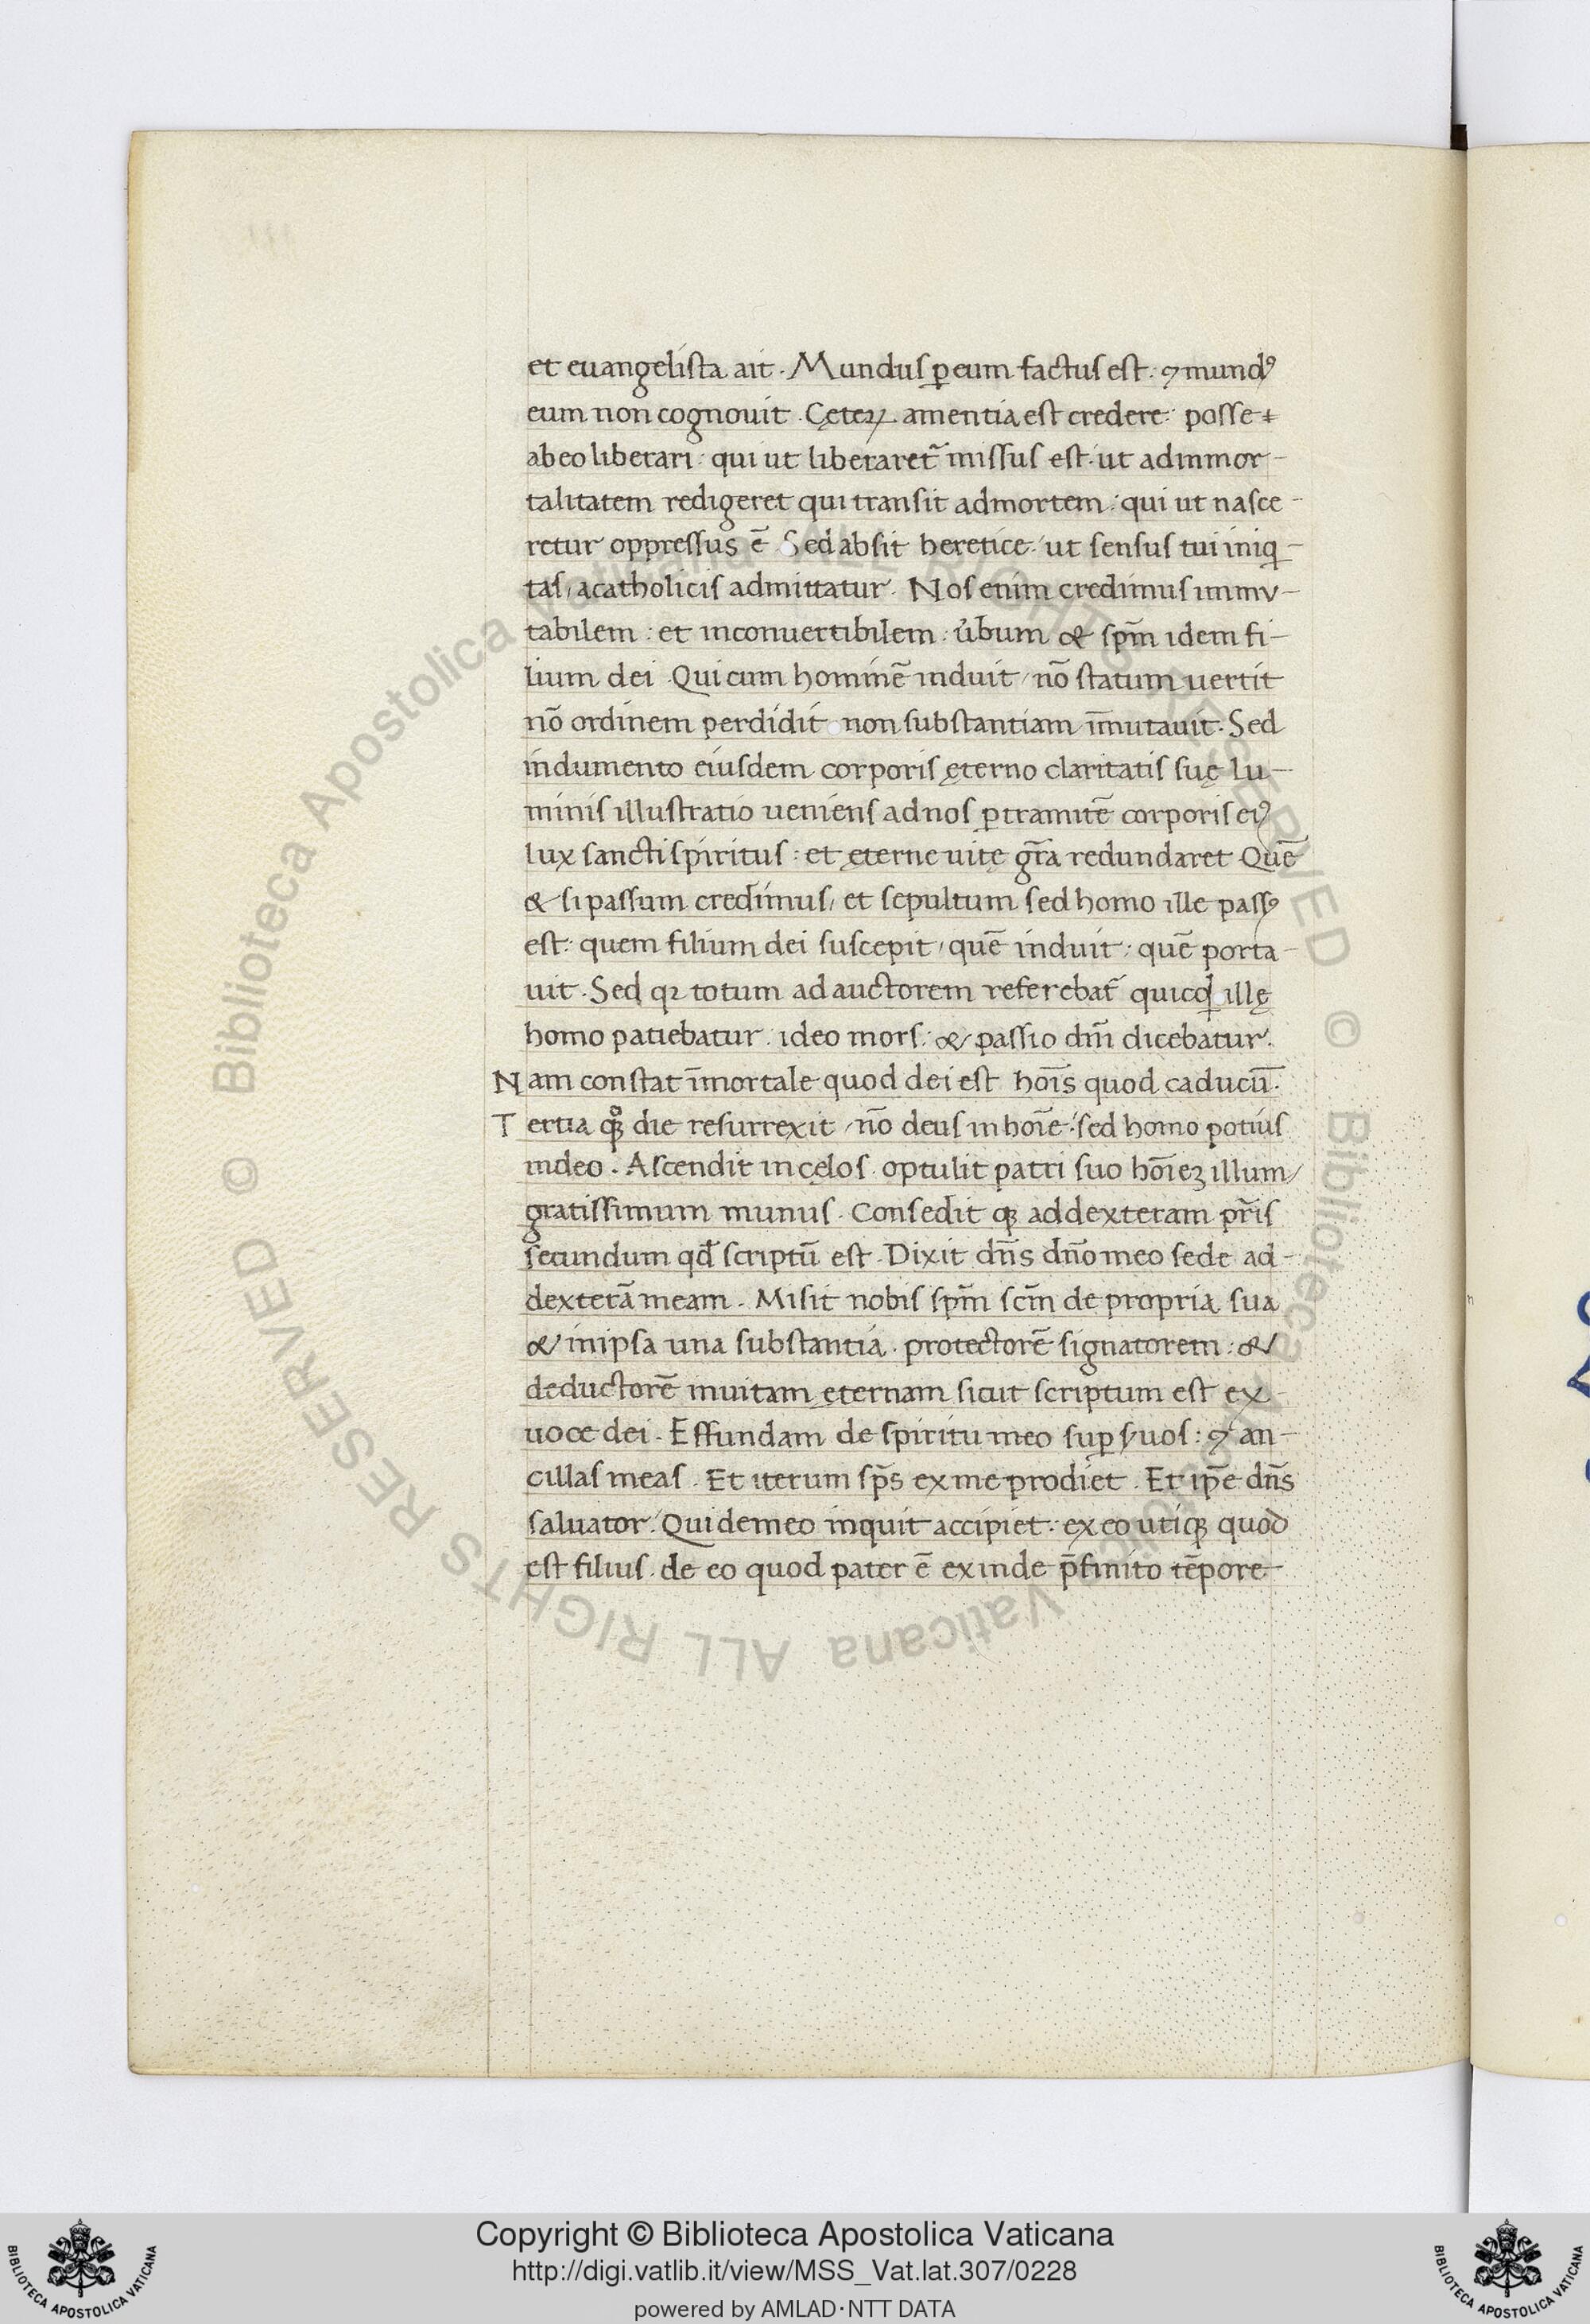 et euangelista ait. Mundus ꝑ eum factus est: ⁊ mundꝰ
eum non cognouit. Cęteꝝ amentia est credere: posse
ab eo liberari: qui ut liberaret᷑ missus est: ut ad inmor-
talitatem redigeret qui transit ad mortem: qui ut nasce-
retur oppressus ē. Sed absit heretice: ut sensus tui iniq-
tas, a catholicis admittatur. Nos enim credimus immu-
tabilem: et inconuertibilem: u̓bum & sp̄m idem fi-
lium dei. Qui cum hominē induit, nō statum uertit
nō ordinem perdidit non substantiam īmutauit. Sed
indumento eiusdem corporis ęterno claritatis suę lu-
minis illustratio ueniens ad nos ꝑ tramitē corporis eiꝰ
lux sancti spiritus: et ęterne uitę gr̄a redundaret Quē
& si passum credimus, et sepultum sed homo ille passꝰ
est: quem filium dei suscepit, quē induit: quē porta-
uit. Sed qꝛ totum ad auctorem referebat᷑ quicꝗd illę
homo patiebatur: ideo mors: & passio dn̄i dicebatur.
Nam constat īmortale quod dei est hoīs quod caducū.
Tertia qꝫ die resurrexit, nō deus in hoīe: sed homo potius
in deo. Ascendit in cęlos. optulit patri suo hoīeꝫ illum,
gratissimum munus. Consedit qꝫ ad dexteram pr̄is
secundum qd̄ scriptū est. Dixit dn̄s dn̄o meo sede ad-
dexterā meam. Misit nobis sp̄m sc̄m de propria sua
& in ipsa una substantia. protectorē signatorem: &
deductorē in uitam ęternam sicut scriptum est ex
uoce dei. Effundam de spiritu meo suꝑ suos: ⁊ an-
cillas meas. Et iterum sp̄s ex me prodiet. Et ip̄e dn̄s
saluator. Qui de meo inquit accipiet: ex eo utiqꝫ quod
est filius. de eo quod pater ē exinde p̄finito tēpore
Copyright © Biblioteca Apostolica Vaticana
http://digi.vatlib.it/view/MSS_Vat.lat.307/0228
powered by AMLAD·NTT DATA
BIBLIOTECA APOSTOLICA VATICANA
BIBLIOTECA APOSTOLICA VATICANA
© Biblioteca Apostolica Vaticana ALL RIGHTS RESERVED © Biblioteca Apostolica Vaticana ALL RIGHTS RESERVED